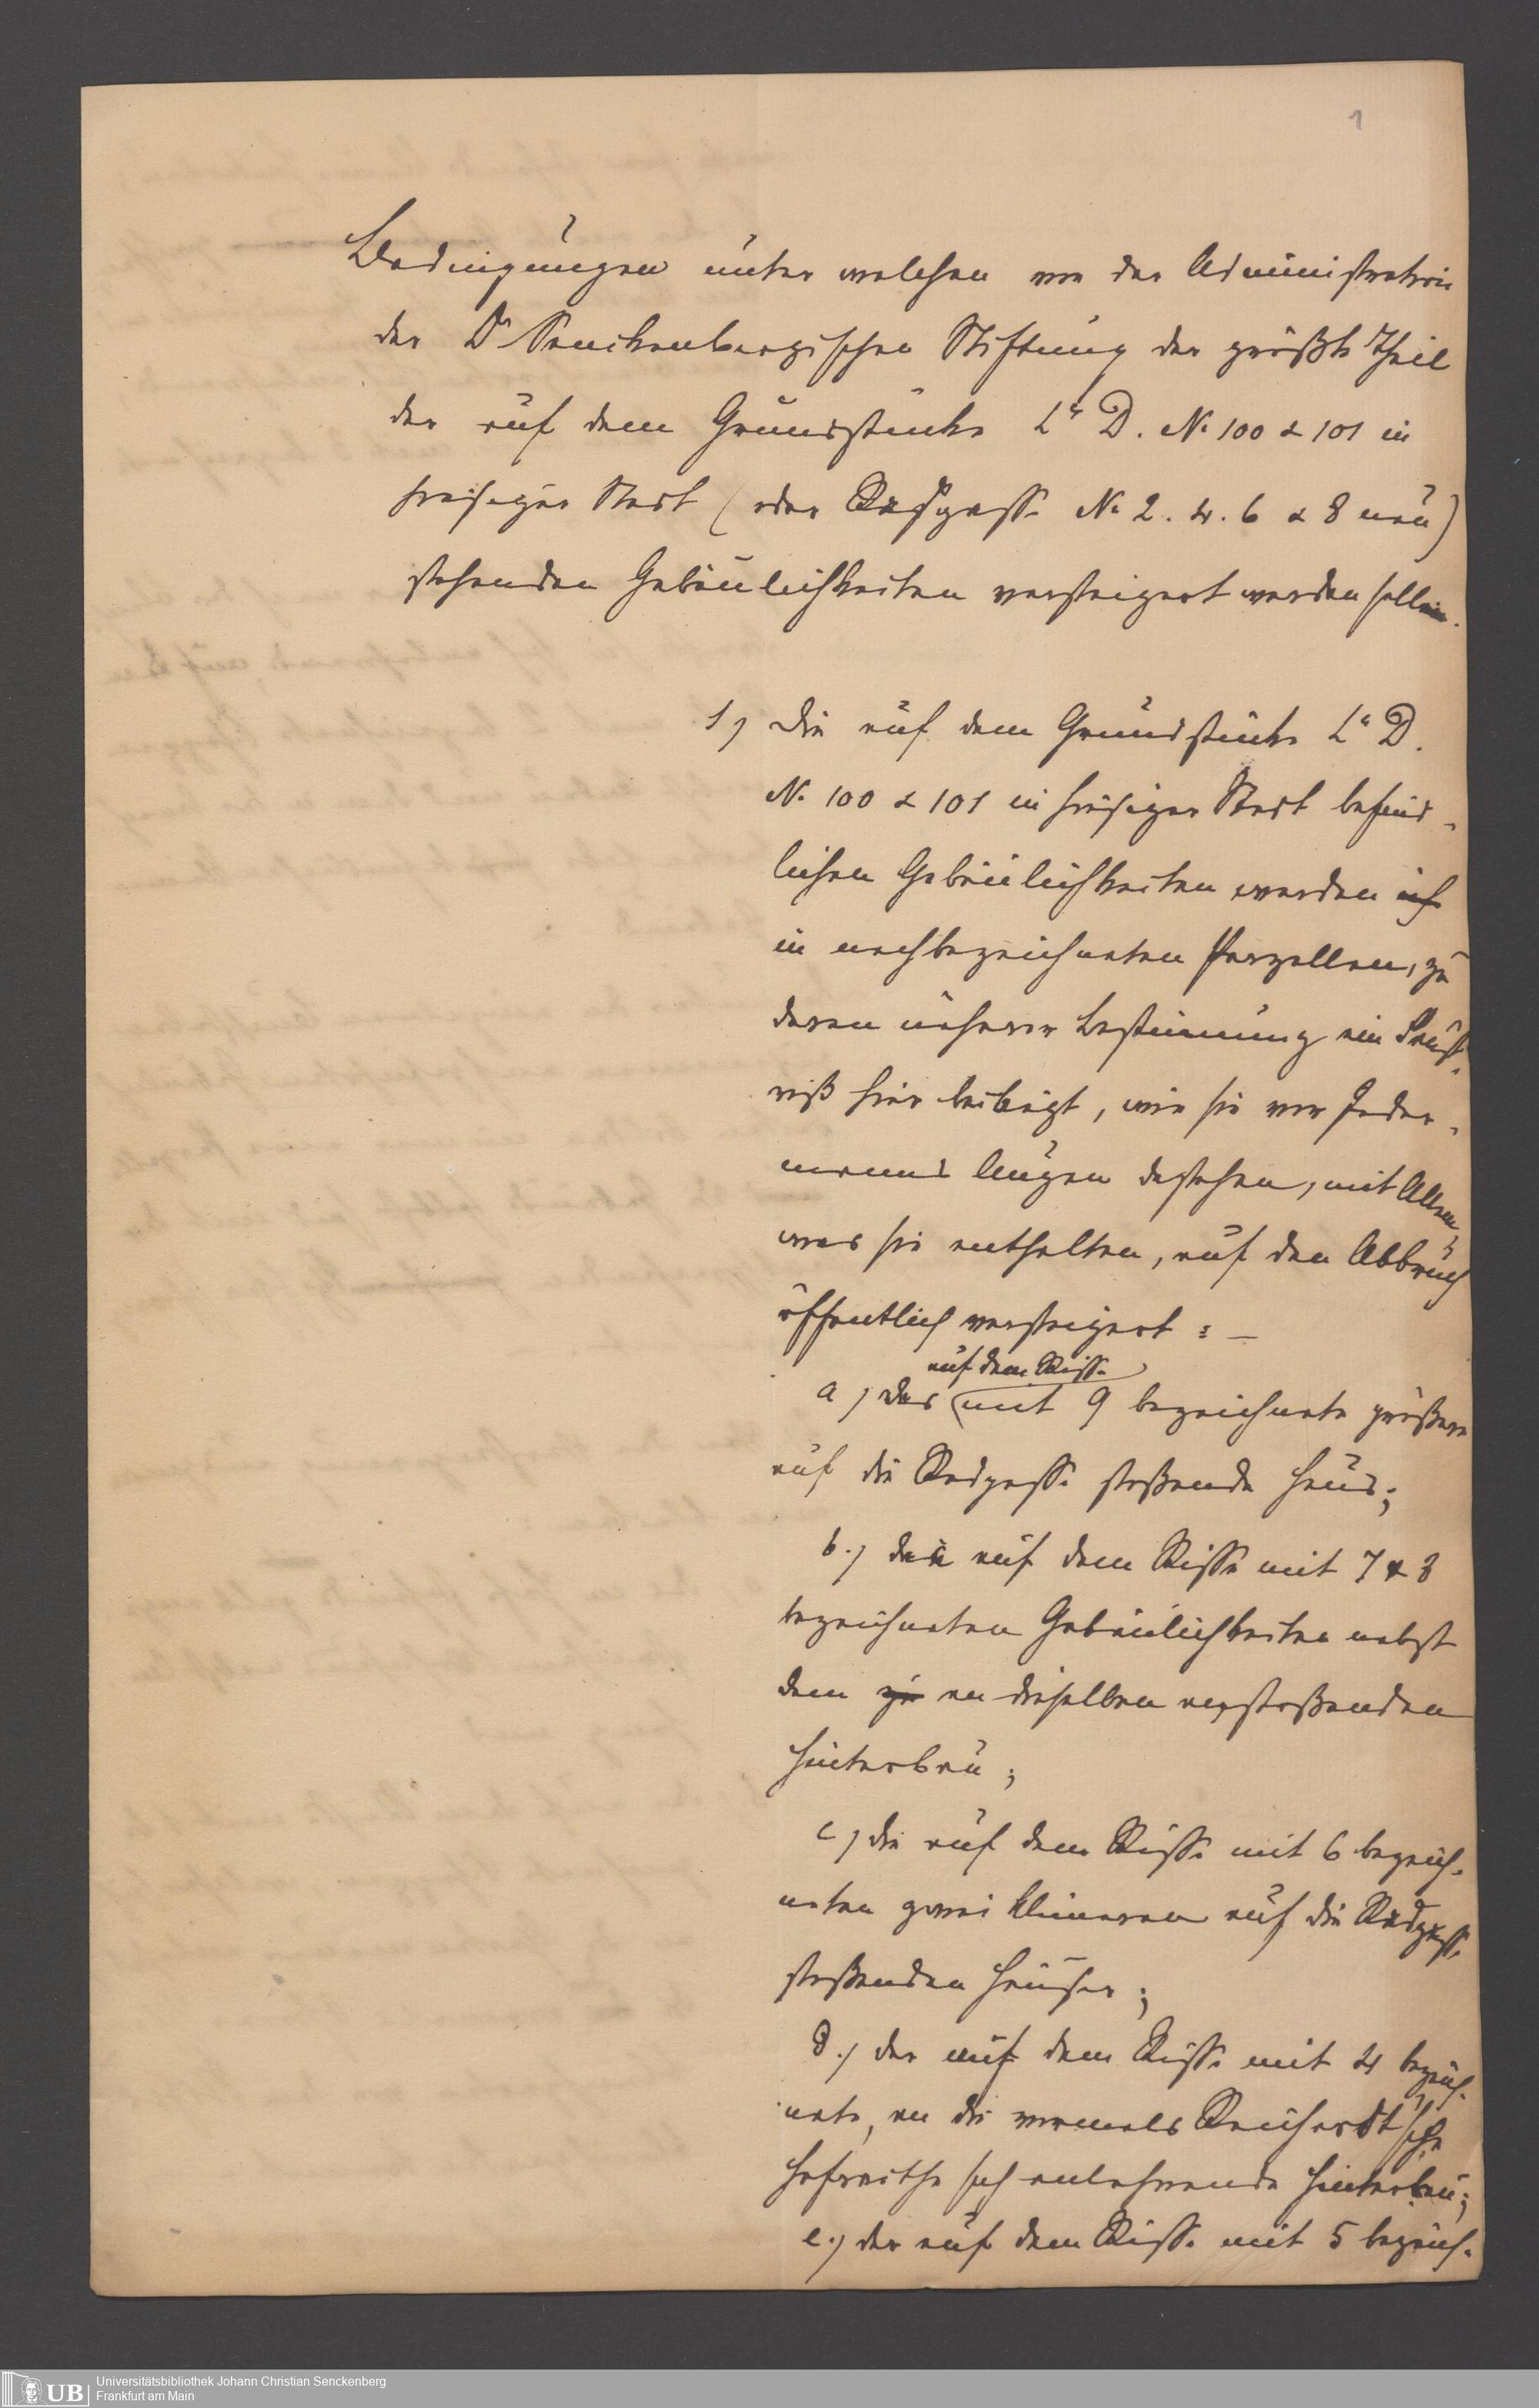 1
Bedingungen unter welchen von der Administration
der Dr Senckenbergischen Stiftung der größte Theil
der auf dem Grundstücke La D. No 100 & 101 in
hiesiger Stadt (oder Radgasse No 2. 4. 6 & 8 neu)
stehenden Gebäulichkeiten versteigert werden sollen.
1) Die auf dem Grundstücke La D.
No 100 & 101 in hiesiger Stadt befind-
lichen Gebäulichkeiten werden
in nachbezeichneten Parzellen, zu
deren näherer Bestimmung ein
riß hier beiliegt, wie sie vor Jeder-
manns Augen dastehen, mit Allem,
was sie enthalten, auf den Abbruch
öffentlich versteigert: —
auf dem Risse
a) das mit 9 bezeichnete größere
auf die Radgasse stoßende Haus;
b.) die auf dem Risse mit 7 & 8
bezeichneten Gebäulichkeiten nebst
dem zu an dieselben anstoßenden
Hinterbau;
c) die auf dem Risse mit 6 bezeich-
neten zwei kleineren auf die Radgasse
stoßenden Häuser;
d.) der auf dem Risse mit 4 bezeich-
nete, an die vormals Reichardt'sche
Hofraithe sich anlehnende Hinterbau;
e.) der auf dem Risse mit 5 bezeich-
UB
Universitätsbibliothek Johann Christian Senckenberg
Frankfurt am Main